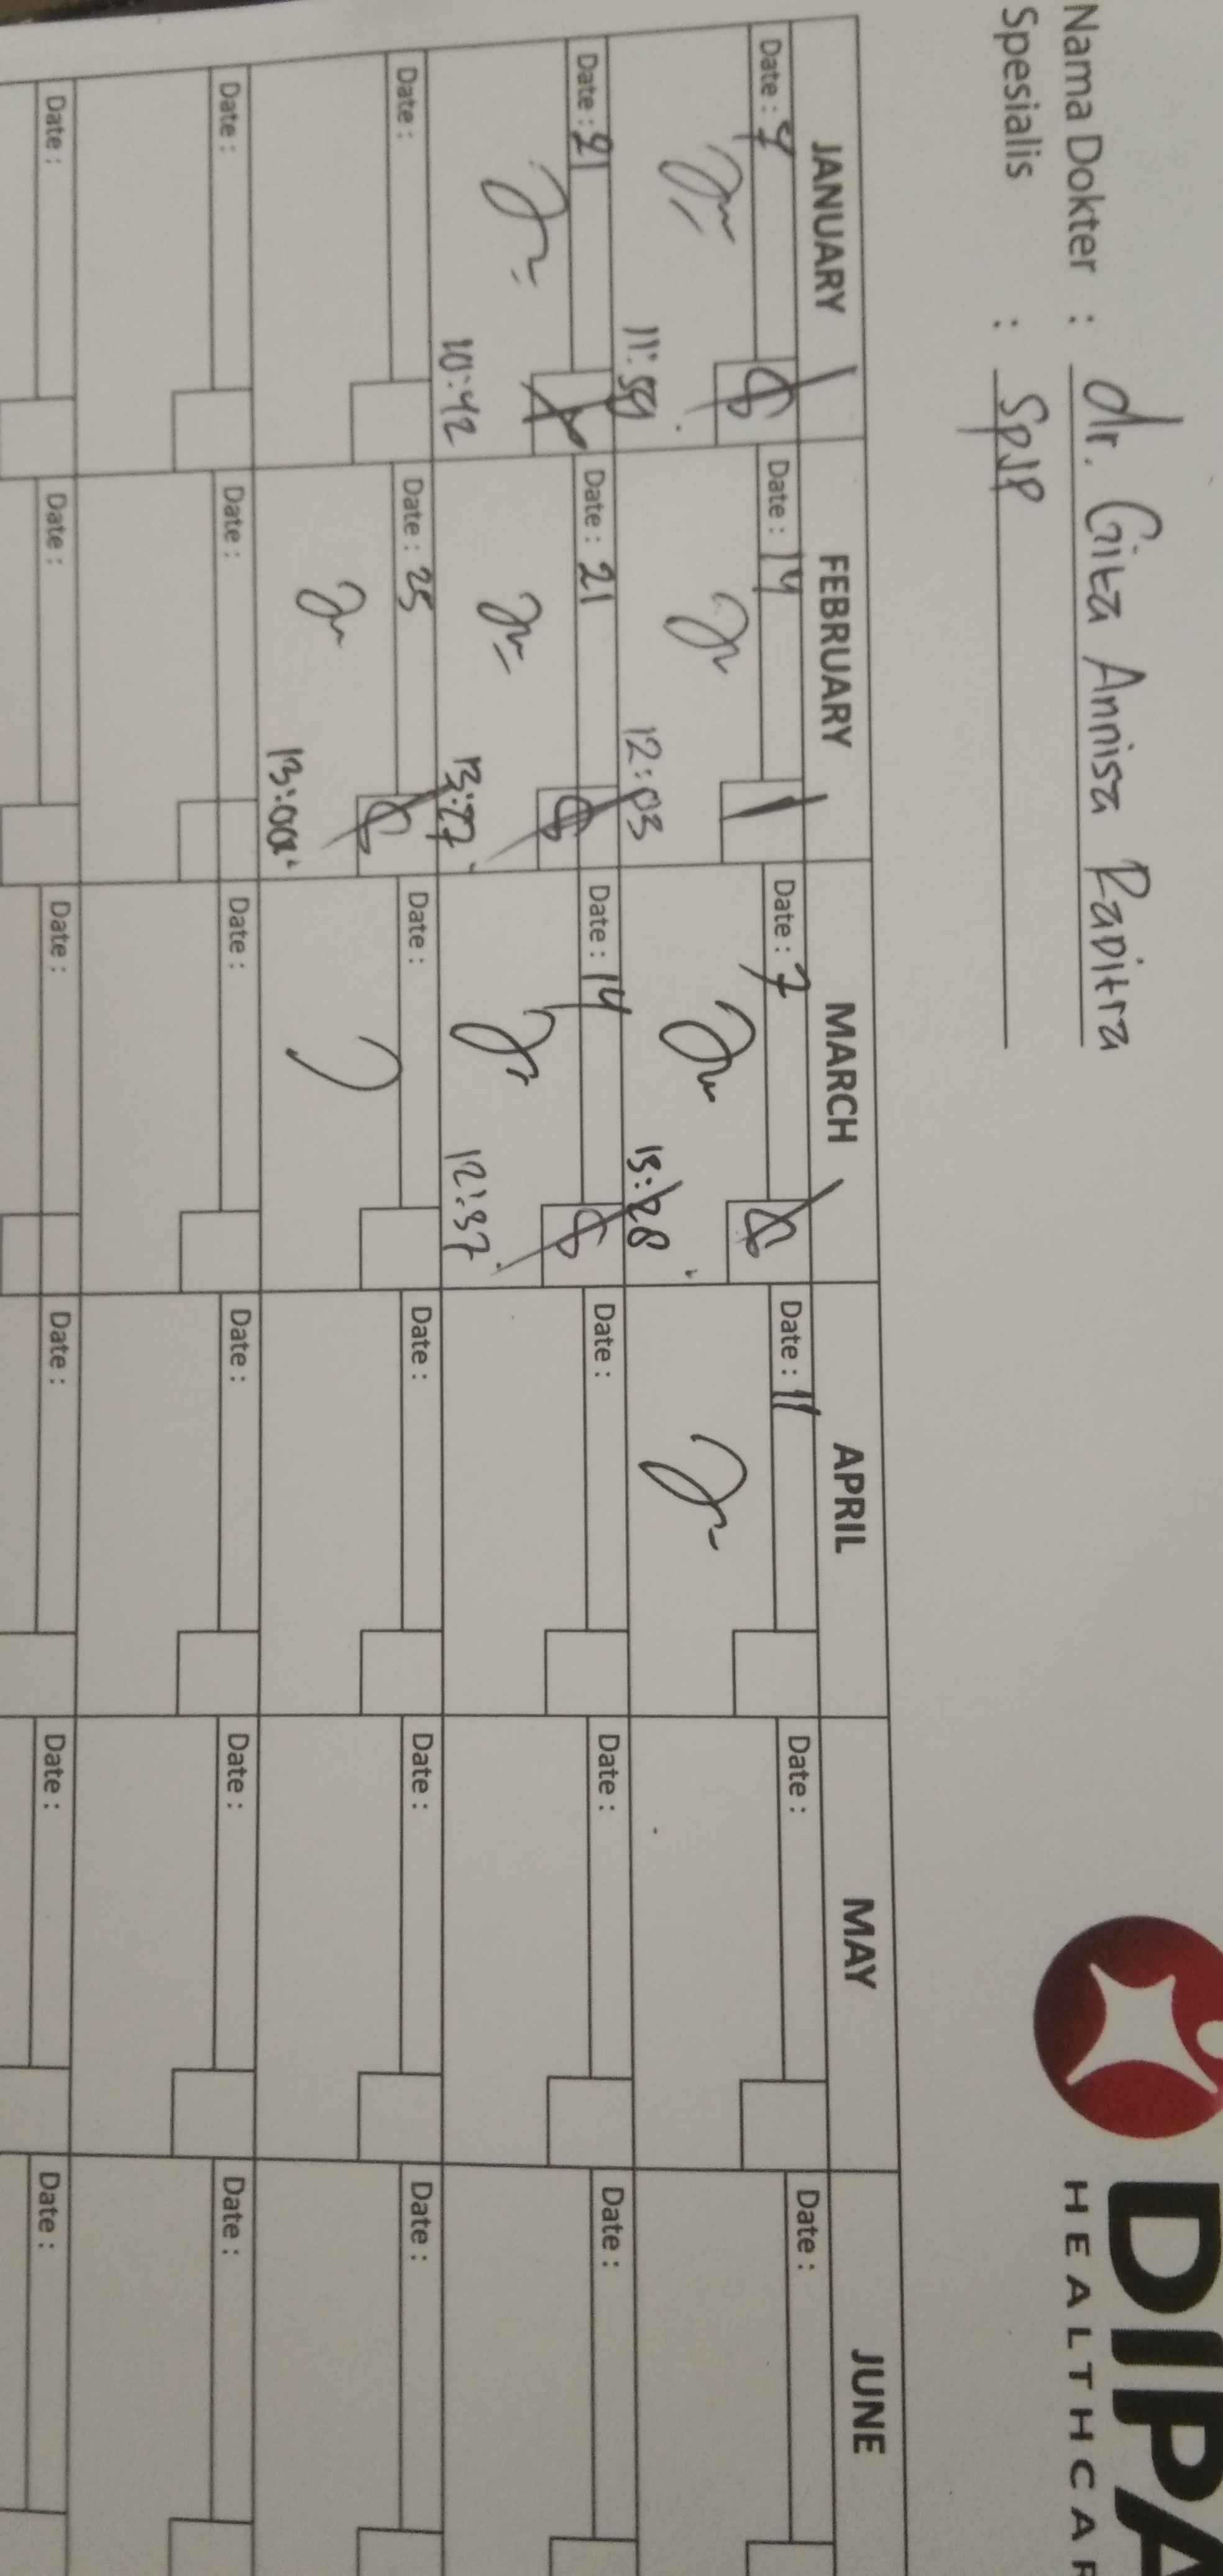 Nama Dokter : dr. Gita Annisa Raditra
Spesialis : SpJP
DIPA
HEALTHCAR
JANUARY FEBRUARY MARCH APRIL MAY JUNE
Date : 7 Date : 14 Date : 7 Date : 11 Date : Date :
11:59 12:03 15:28
Date : 21 Date : 21 Date : 14 Date : Date : Date :
10:42 13:27 12:37
Date : Date : 25 Date : Date : Date : Date :
13:00
Date : Date : Date : Date : Date : Date :
Date : Date : Date : Date : Date : Date :